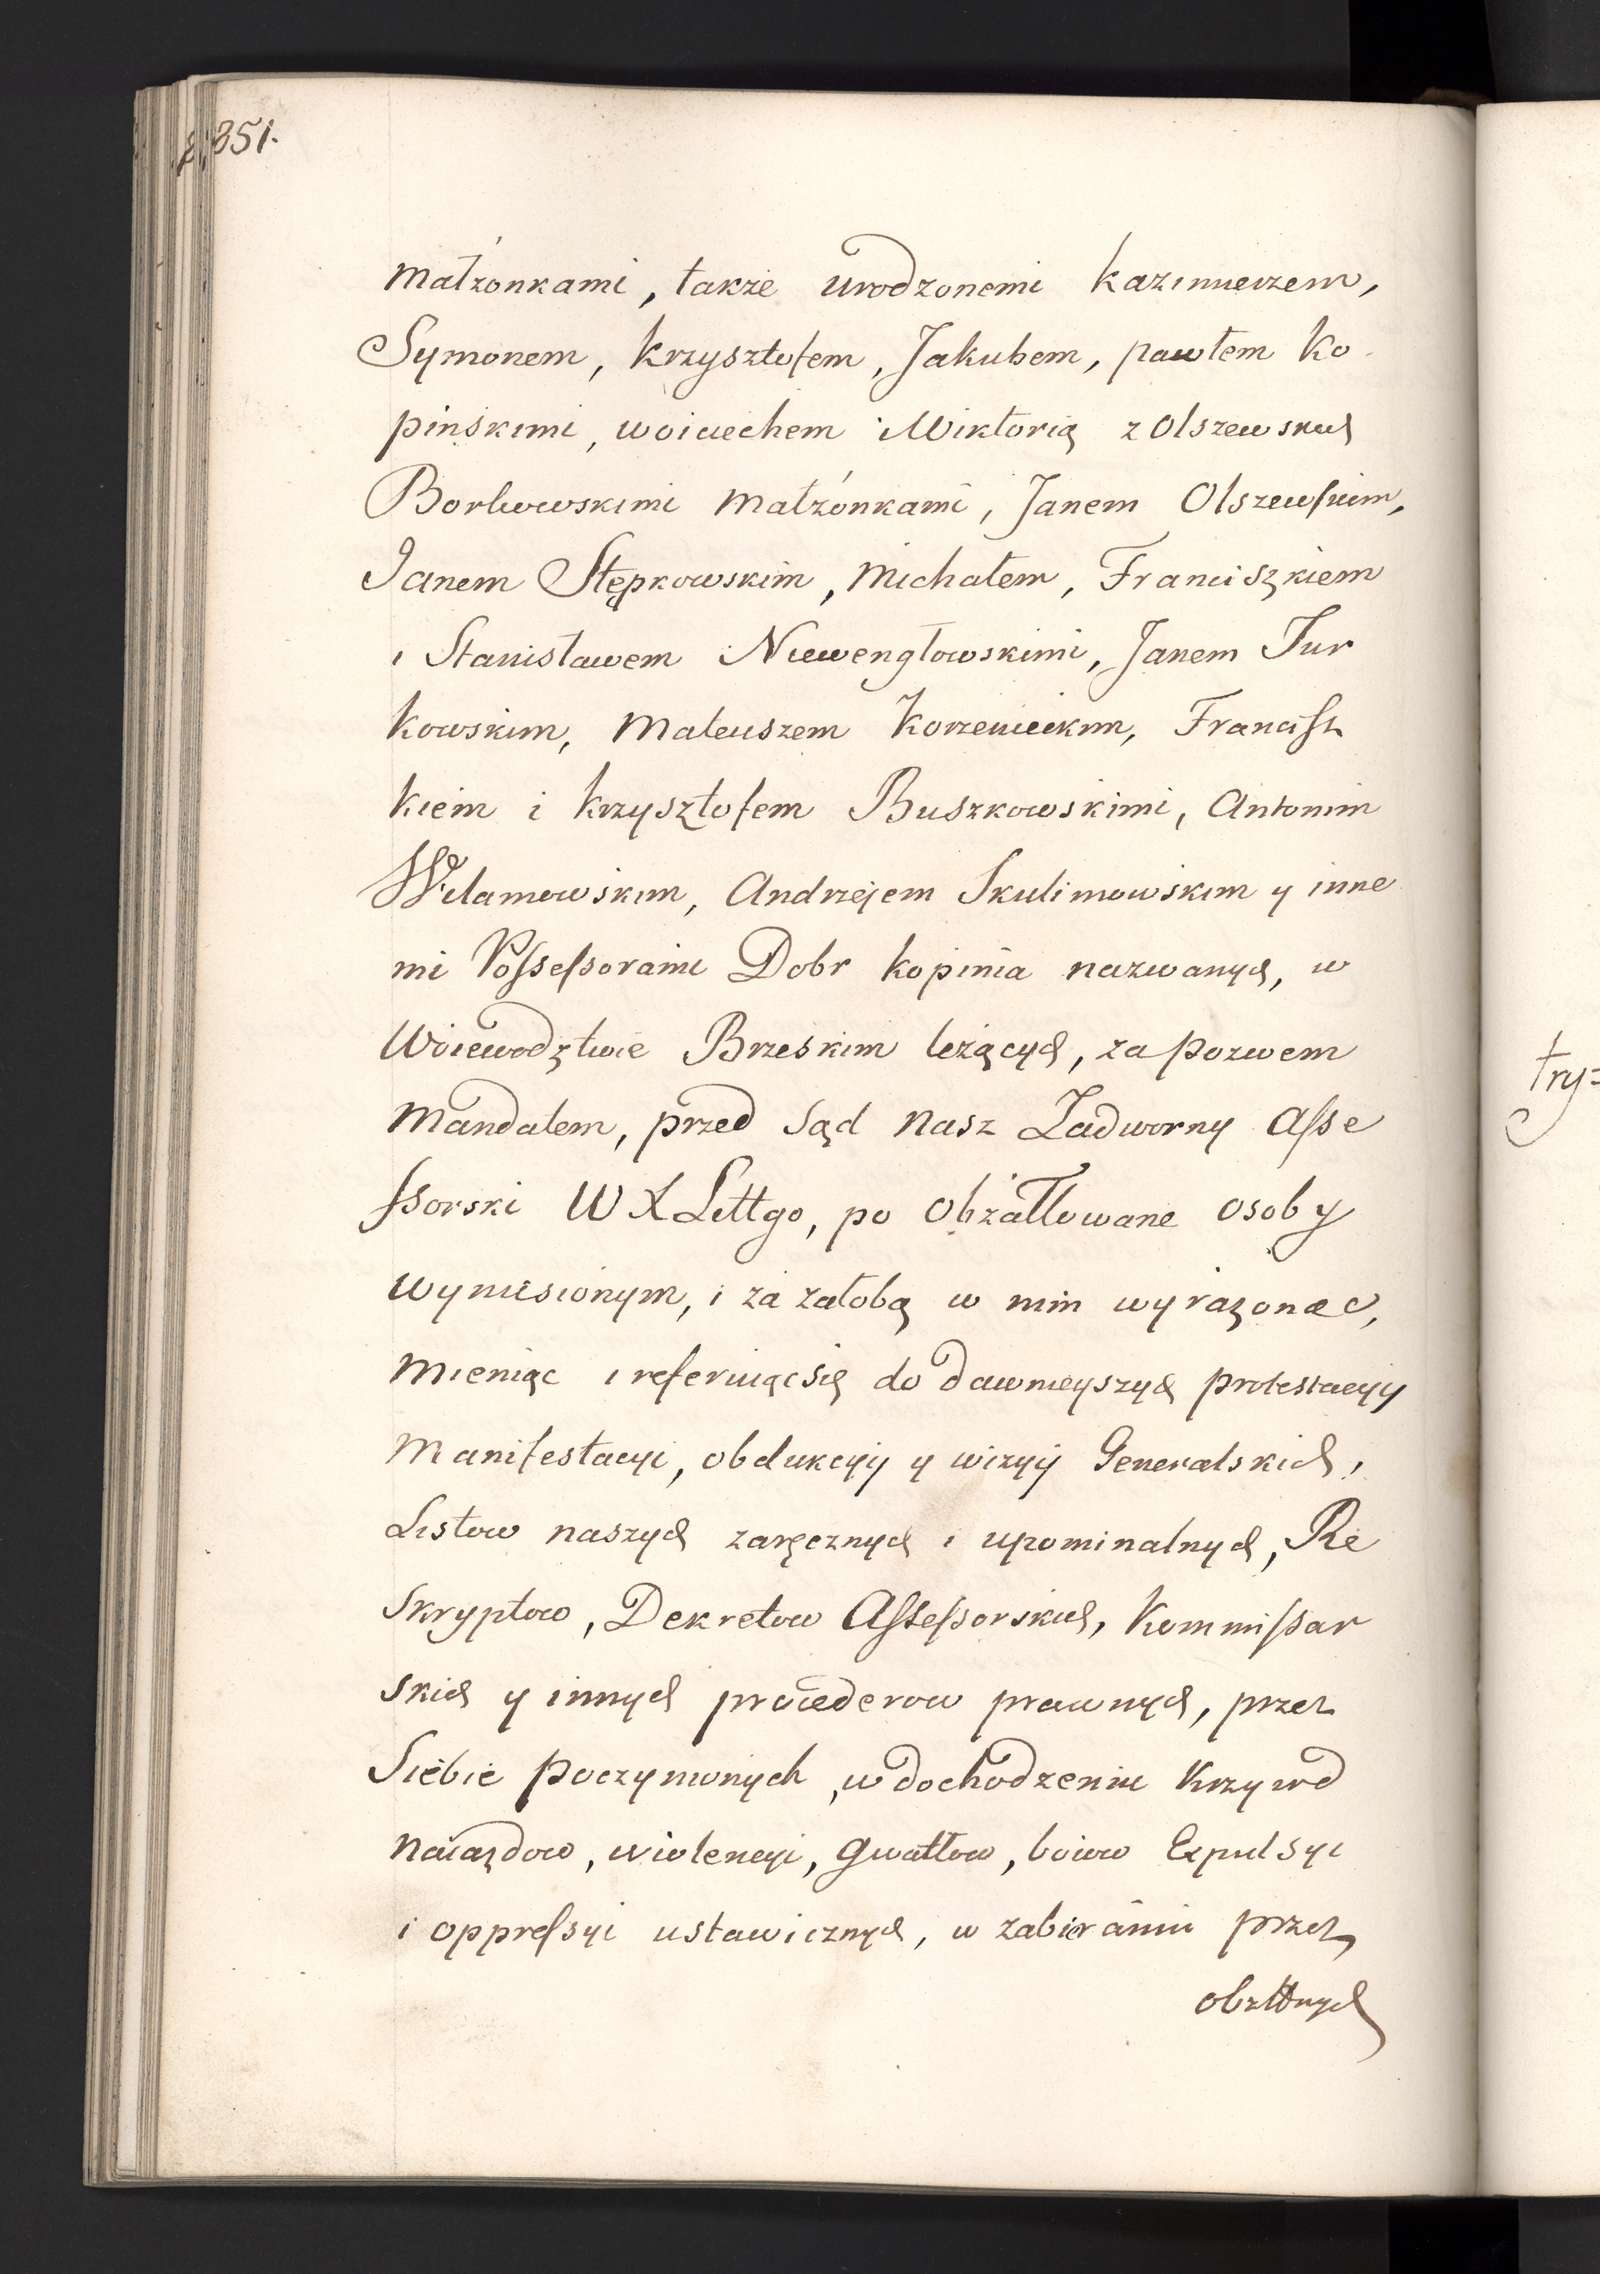 851.
Małżonkami, także urodzonemi Kazimierzem,
Symonem, Krzysztofem, Jakubem, pawłem Ko
pinskimi, woiciechem i Wiktorią z Olszewskich
Borkowskimi Małżonkami, Janem Olszewskim,
Janem Stępkowskim, Michałem, Franciszkiem
i Stanisławem Niewengłowskimi, Janem Tur
kowskim, Mateuszem Korzenieckim, Francisz
kiem i Krzysztofem Buszkowskimi, Antonim
Wilamowskim, Andrzejem Skulimowskim y inne
mi Possessorami Dobr kopinia nazwanych, w
Woiewodztwie Brzeskim leżących, za pozwem
Mandatem, przed Sąd Nasz Zadworny Asse
ssorski W X Littgo, po Obżałłowane osoby
wyniesionym, i za żałobą w nim wyrażone,
Mieniąc i referuiąc się do dawnieyszych protestacyy
Manifestacyi, obdukcyy y wizyy Generalskich,
Listow naszych zaręcznych i upominalnych, Re
skryptow, Dekretow Assessorskich, Kommissar
skich y innych procederow prawnych, przez
Siebie poczynionych, w dochodzeniu Krzywd
Naiazdow, wiolencyi, gwałtow, boiow Expulsyi
i oppressyi ustawicznych, w zabieraniu przez
obżłłnych
try=